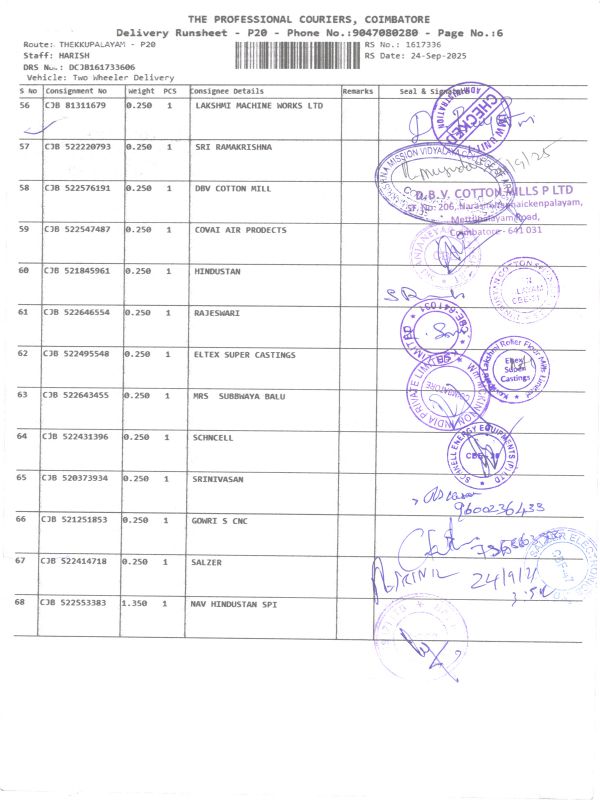 THE PROFESSIONAL COURIERS, COIMBATORE
Delivery Runsheet - P20 - Phone No.:9047080280 - Page No.:6
Route: THEKKUPALAYAM - P20 RS No.: 1617336
Staff: HARISH RS Date: 24-Sep-2025
DRS No.: DCJB161733606
Vehicle: Two Wheeler Delivery
S No Consignment No Weight PCS Consignee Details Remarks Seal & Signature
56 CJB 81311679 0.250 1 LAKSHMI MACHINE WORKS LTD
ADMINISTRATION CHECKED
57 CJB 522220793 0.250 1 SRI RAMAKRISHNA
MISSION VIDYALAYA
58 CJB 522576191 0.250 1 DBV COTTON MILL
D.B.V. COTTON MILLS P LTD
SF. No: 206, Narasimhanaickenpalayam,
Mettupalayam Road,
Coimbatore - 641 031
59 CJB 522547487 0.250 1 COVAI AIR PRODECTS
60 CJB 521845961 0.250 1 HINDUSTAN
61 CJB 522646554 0.250 1 RAJESWARI
CBE-641 031
62 CJB 522495548 0.250 1 ELTEX SUPER CASTINGS
Lakshmi Roller Flour Mills Limited
Eltex Super Castings
63 CJB 522643455 0.250 1 MRS SUBBWAYA BALU
INDIA PRIVATE LIMITED
COIMBATORE
64 CJB 522431396 0.250 1 SCHNCELL
SCHNELL ENERGY EQUIPMENTS (P) LTD
65 CJB 520373934 0.250 1 SRINIVASAN
9600236433
66 CJB 521251853 0.250 1 GOWRI S CNC
67 CJB 522414718 0.250 1 SALZER
SALZER ELECTRONICS
CBE-47
68 CJB 522553383 1.350 1 NAV HINDUSTAN SPI